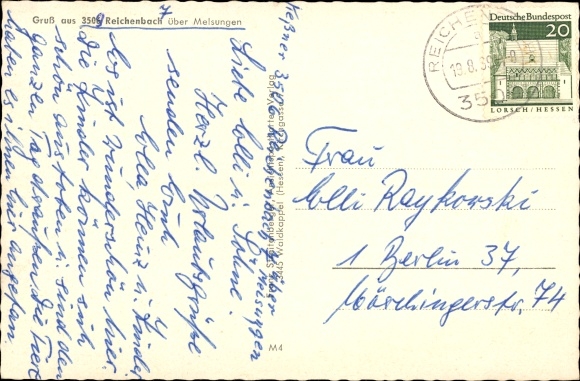 Gruß aus 3509 Reichenbach über Melsungen
Liebe Elli u. Söhne.
Herzl. Urlaubsgrüße
senden Euch
Ella, Heinz u. Kinder
Es ist wunderschön hier.
die Kinder können sich
schön austoben u. sind den
ganzen Tag draußen. Die Tiere
haben es ihnen angetan
3501
Melsungen
Verlag
Waldkappel (Hessen),
M4
REICHEN
3501
Deutsche Bundespost
20
LORSCH / HESSEN
Frau
Elli Raykowski
1 Berlin 37,
Mörchingerstr. 74